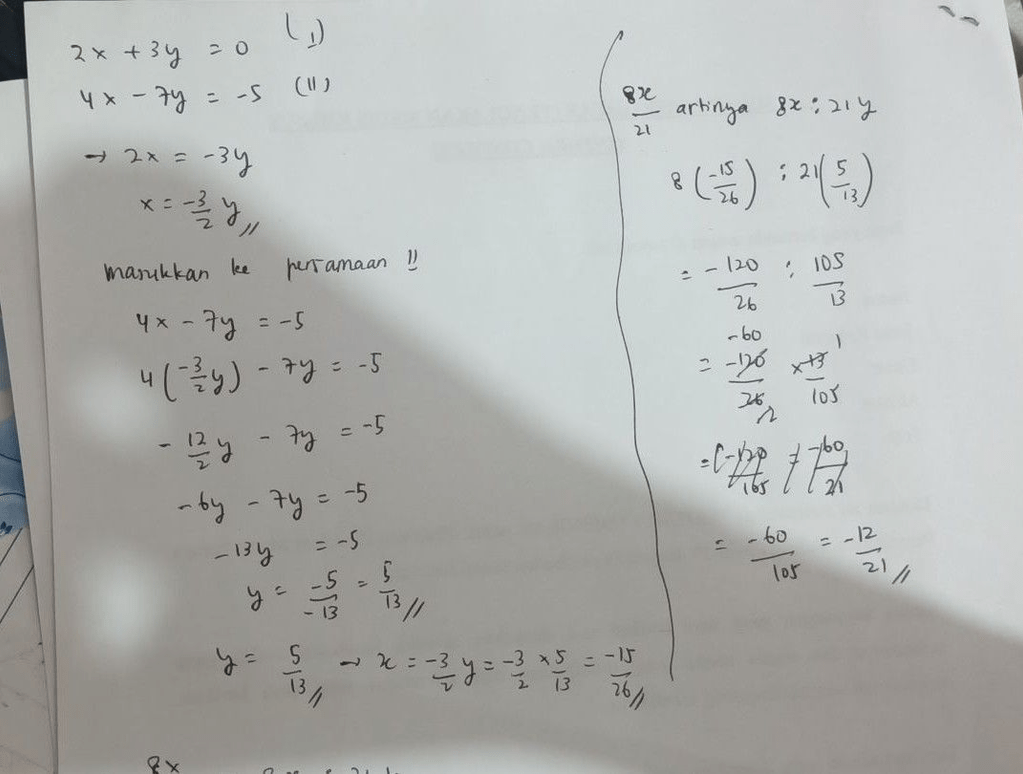 2x + 3y = 0 (I)
4x - 7y = -5 (II)
→ 2x = -3y
x = -3/2 y //
masukkan ke persamaan II
4x - 7y = -5
4(-3/2 y) - 7y = -5
-12/2 y - 7y = -5
-6y - 7y = -5
-13y = -5
y = -5/-13 = 5/13 //
y = 5/13 // → x = -3/2 y = -3/2 × 5/13 = -15/26 //
8x
8x/21 artinya 8x : 21y
8(-15/26) : 21(5/13)
= -120/26 : 105/13
-60 1
= -120/26 × 13/105
2
= -60/105 = -12/21 //